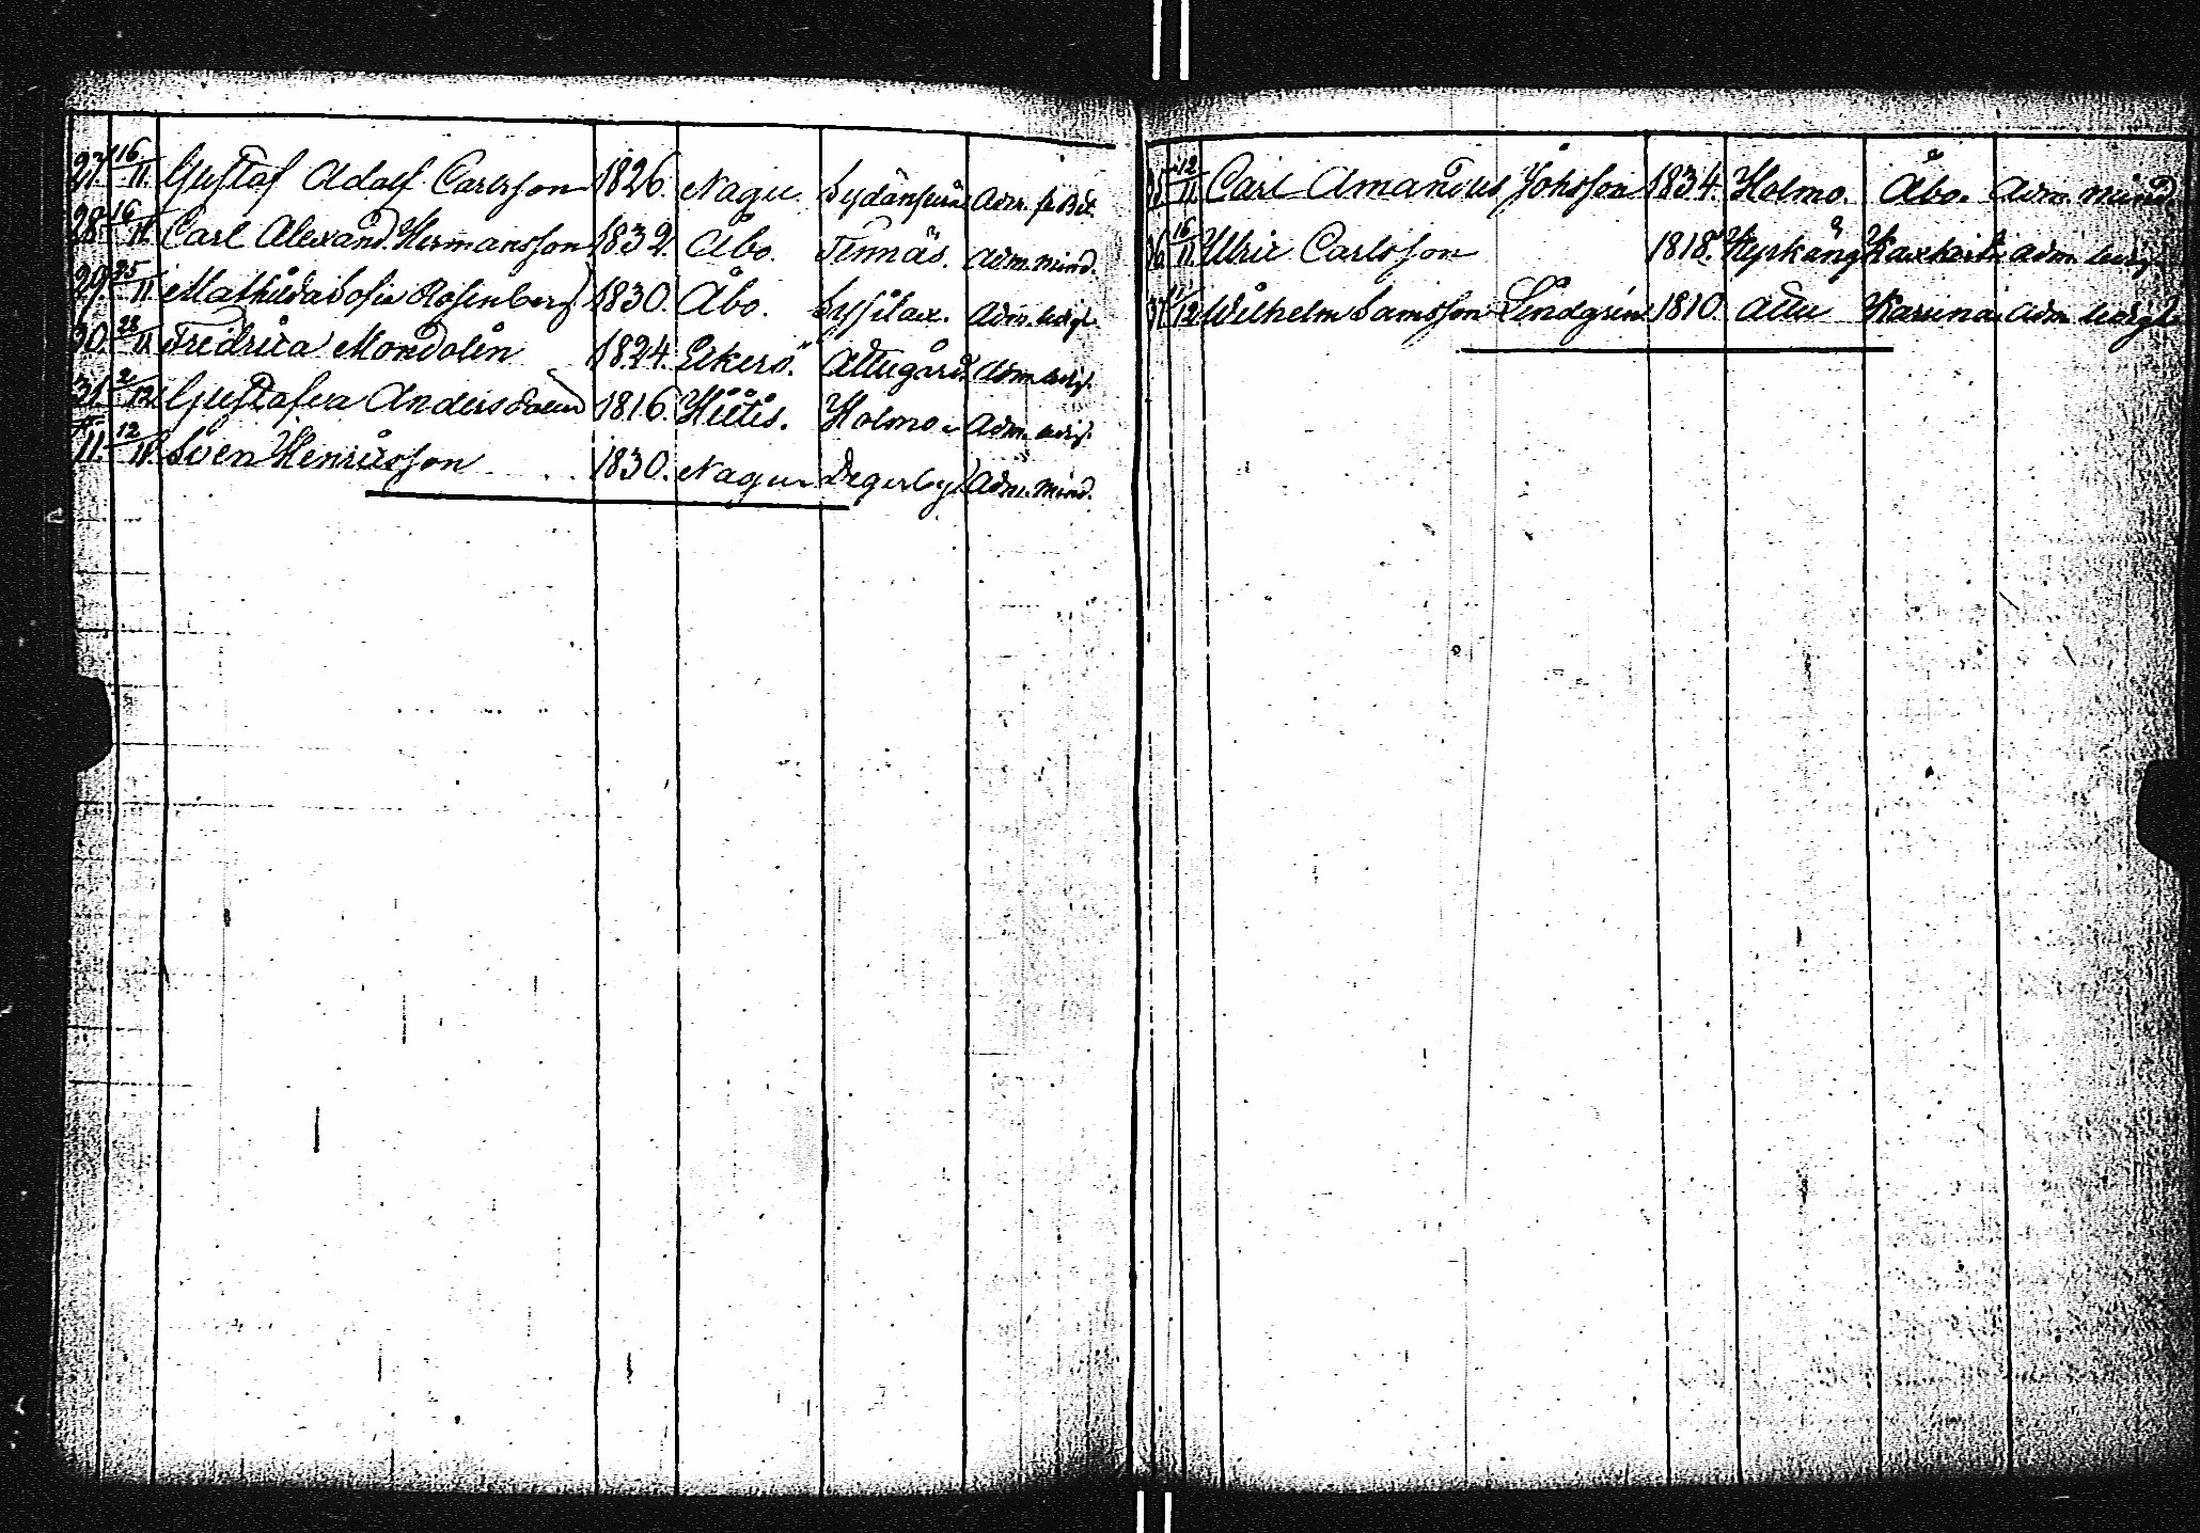 27. 16/11. Gustaf Adolf Carlsson 1826. Nagu. Sydänperä Adm.
28. 16/11. Carl Alexand. Hermansson 1832. Åbo. Tennäs. Adm. mind.
29. 25/11. Mathilda Sofia Rosenberg 1830. Åbo. Lyssilax. Adm. ledigt.
30. 28/11. Fredrica Mondolin 1824. Eckerö. Attugård. Adm. ledigt.
31. 2/12. Gustafva Andersdotter 1816. Hiitis. Holmo. Adm. ledigt.
11. 12/11. Sven Henricsson 1830. Nagu Degerby Adm. mind.
15. 12/11. Carl Amandus Johsson 1834. Holmo. Åbo. Adm. mind.
16. 16/11. Ulric Carlsson 1818. Kyrkäng Adm. ledigt
17. /12 Wilhelm Samsson Lindgrén 1810. Attu Karuna Adm. ledigt.